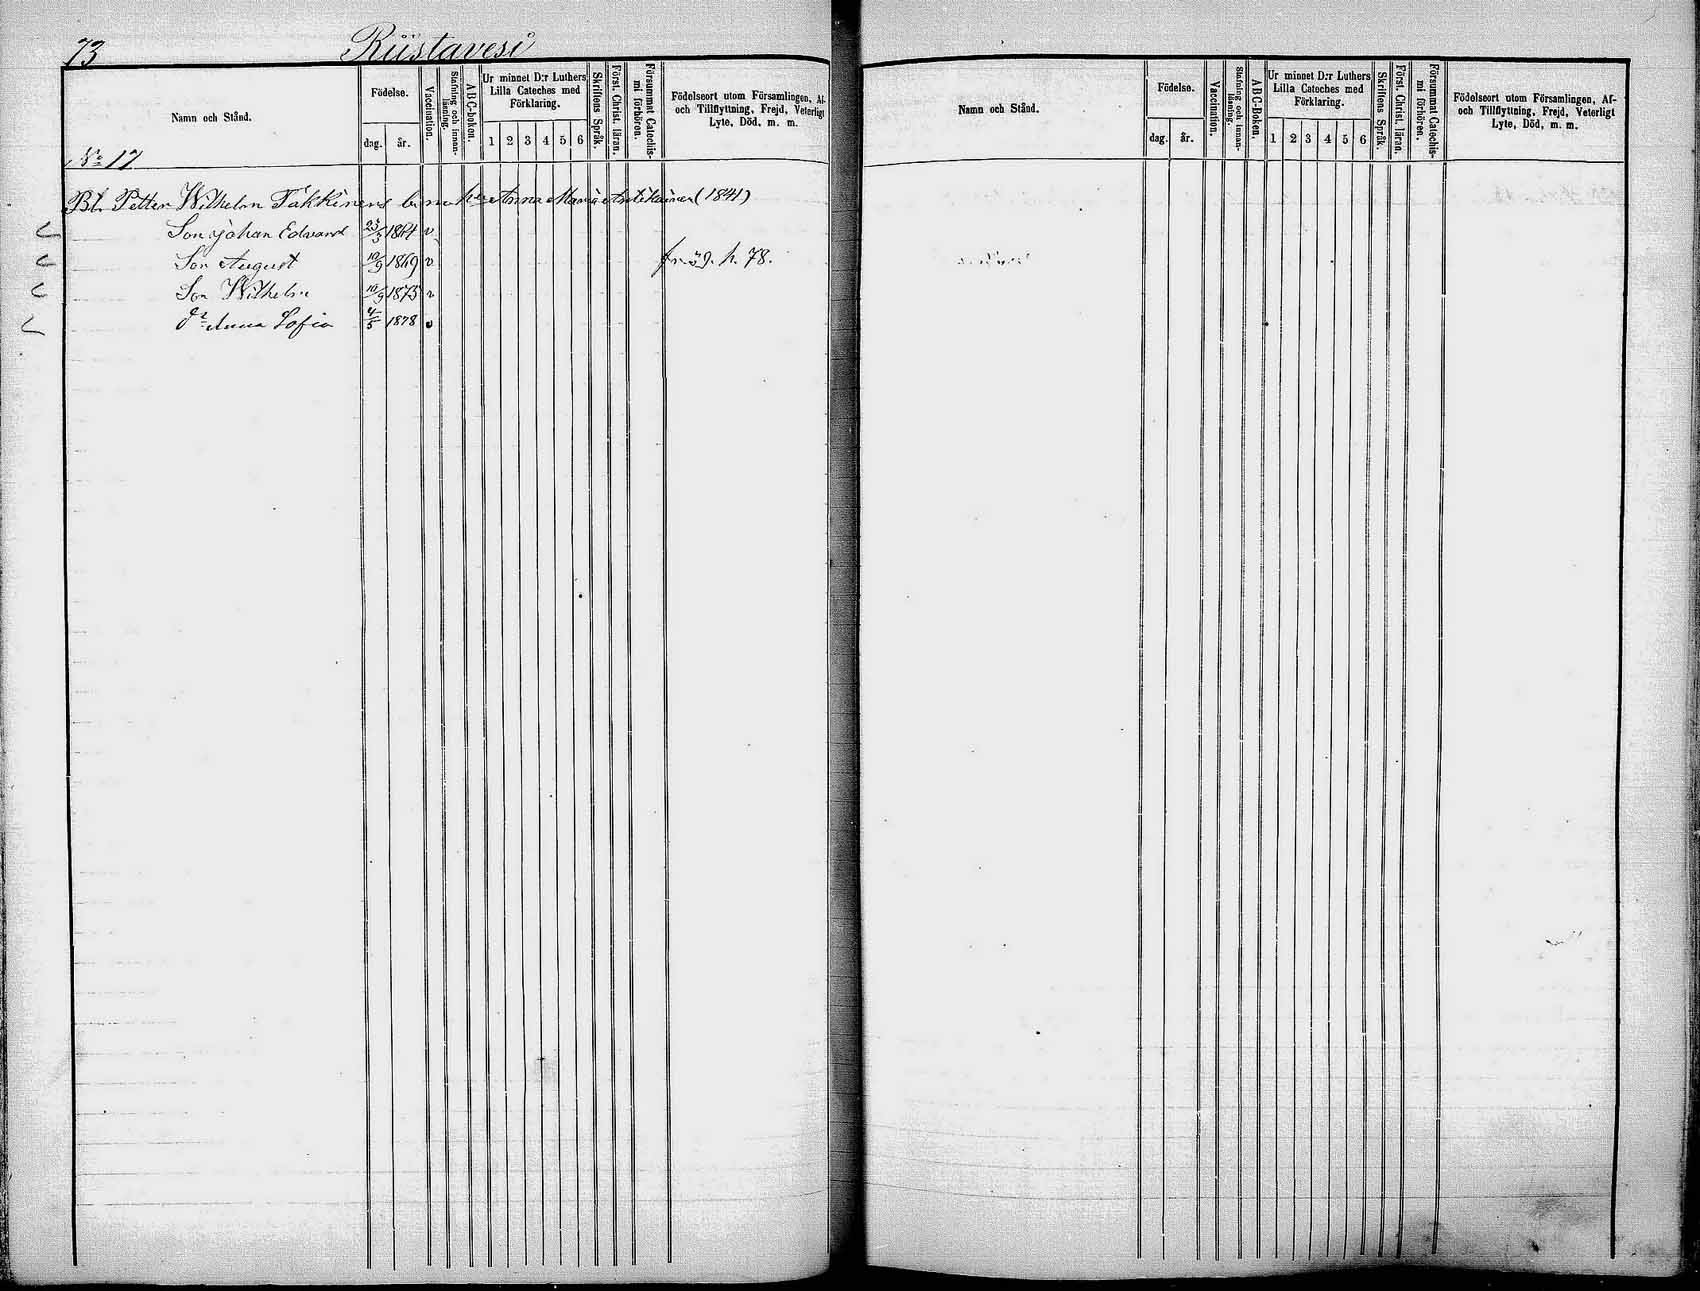 73 Riistavesi
Namn och Stånd.
Födelse.
dag. år.
Vaccination.
Stafning och innan-läsning.
ABC-boken.
Ur minnet D:r Luthers
Lilla Cateches med
Förklaring.
1 2 3 4 5 6
Skriftens Språk.
Först. Christ. läran.
Försummat Catechis-mi förhören.
Födelseort utom Församlingen, Af-
och Tillflyttning, Frejd, Veterligt
Lyte, Död, m. m.
No 17
Petter Wilhelm Takkinens Anna Maria (1841)
Son Johan Edvard 23/3 1864 v
Son August 10/9 1869 v fr. sög. h. 78.
Son Wilhelm 10/9 1875 v
dr Anna Sofia 4/5 1878 v
Namn och Stånd.
Födelse.
dag. år.
Vaccination.
Stafning och innan-läsning.
ABC-boken.
Ur minnet D:r Luthers
Lilla Cateches med
Förklaring.
1 2 3 4 5 6
Skriftens Språk.
Först. Christ. läran.
Försummat Catechis-mi förhören.
Födelseort utom Församlingen, Af-
och Tillflyttning, Frejd, Veterligt
Lyte, Död, m. m.